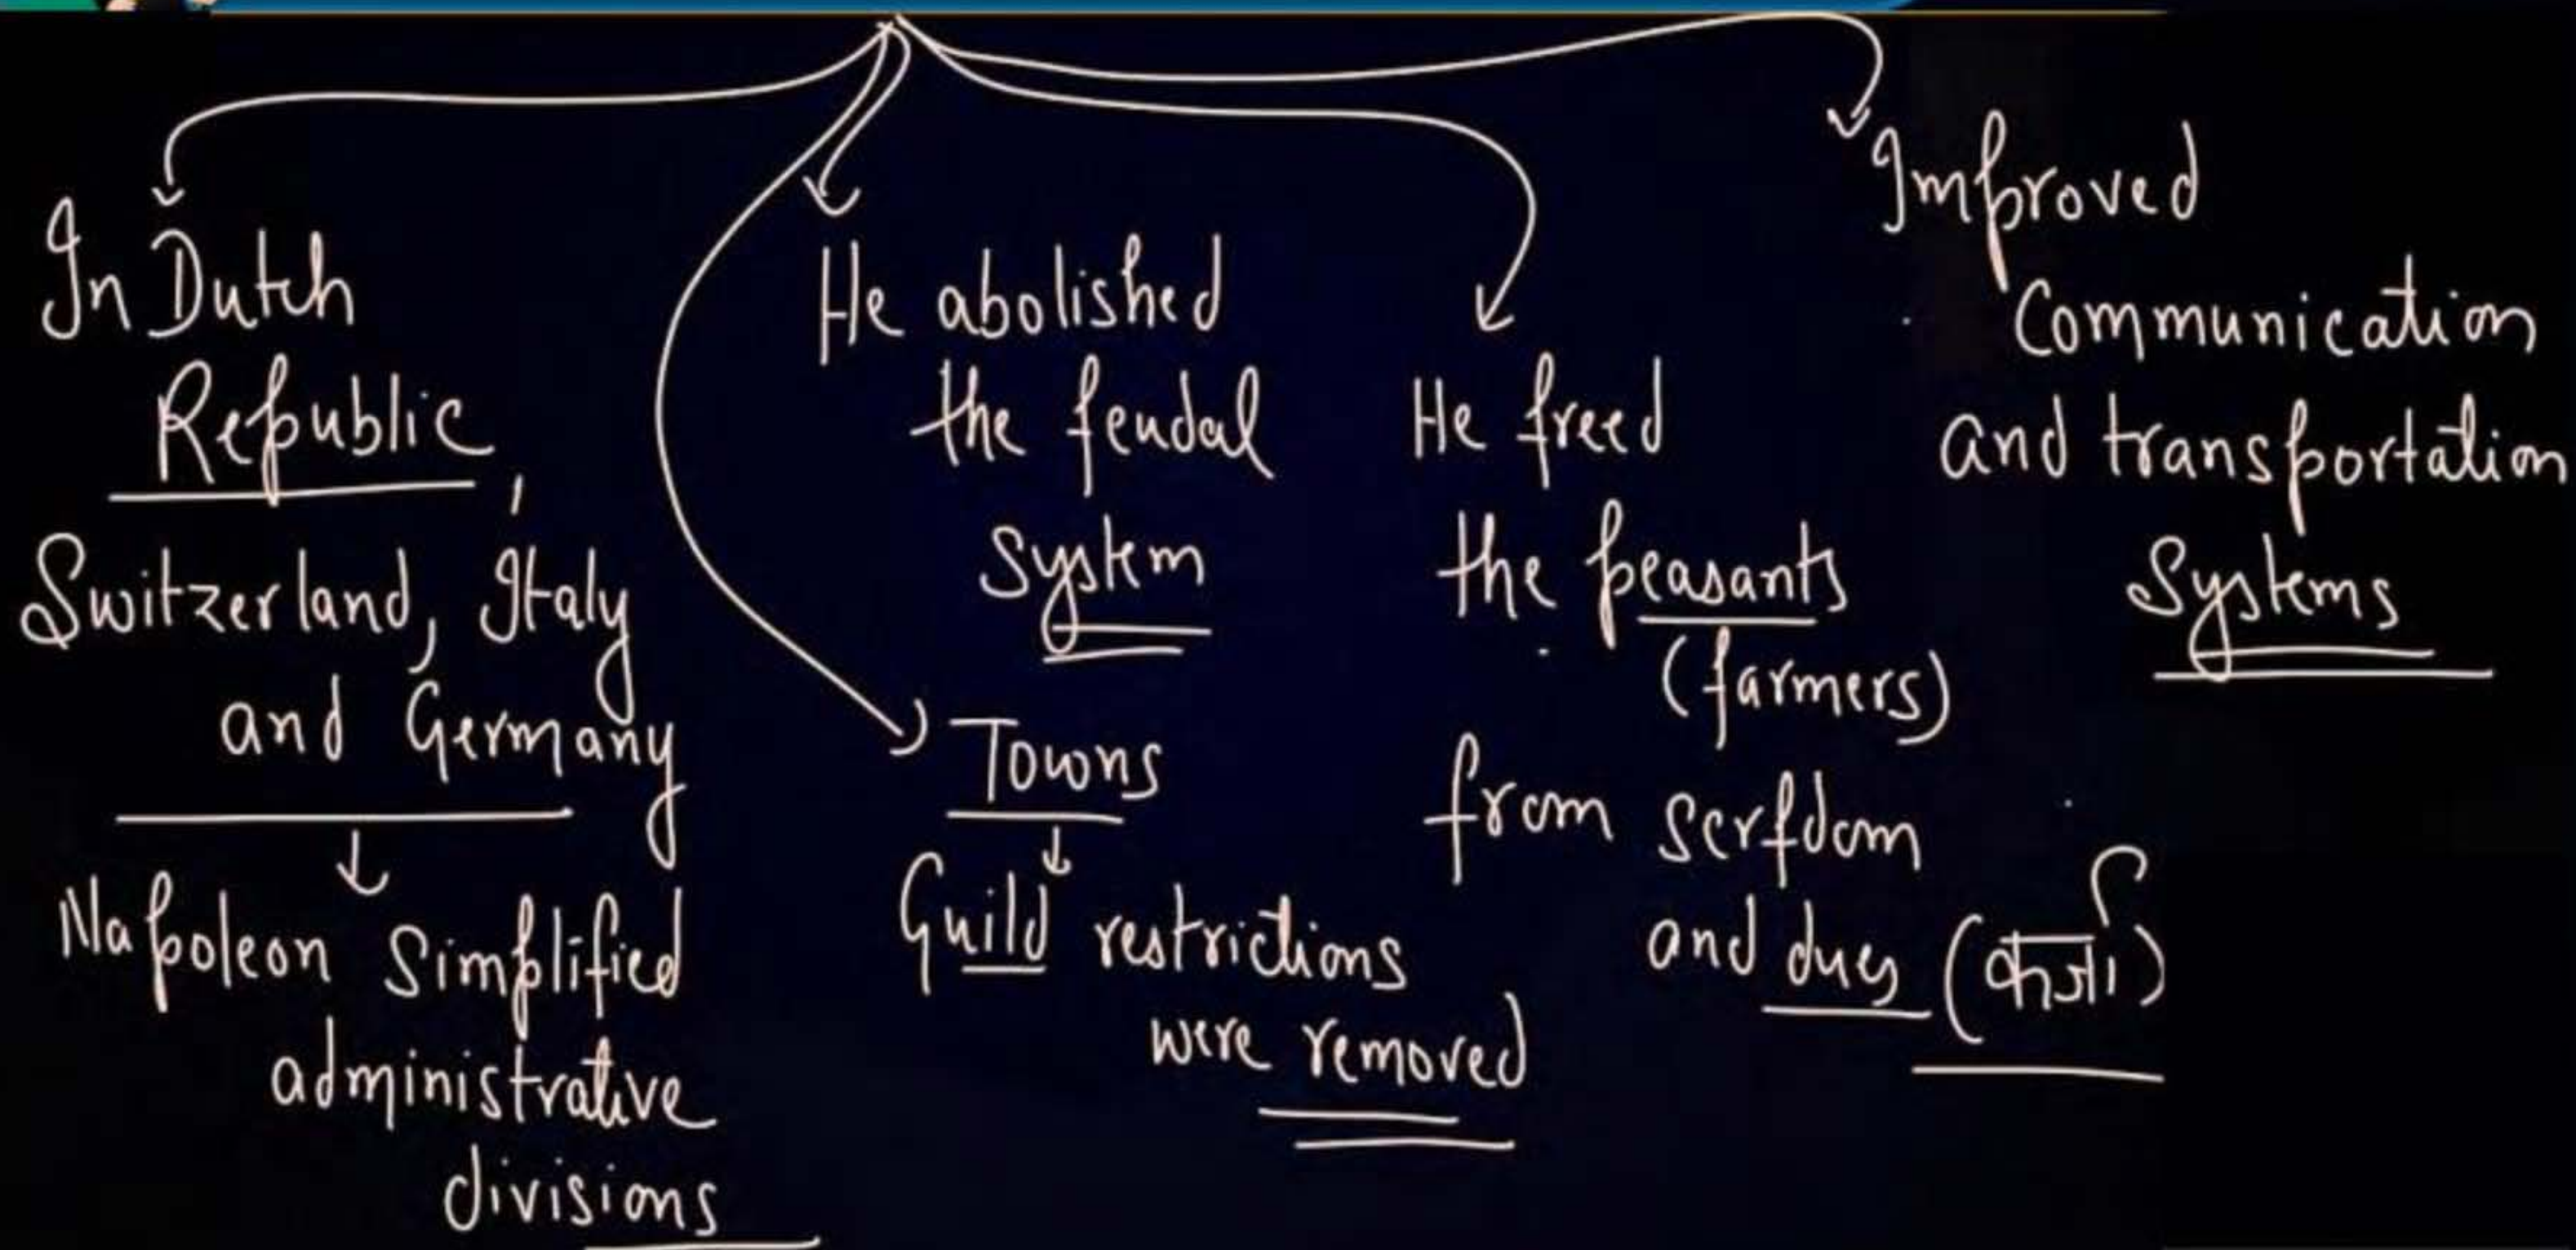 In Dutch
Republic,
Switzerland, Italy
and Germany
Napoleon Simplified
administrative
divisions
He abolished
the feudal
System
Towns
Guild restrictions
were removed
He freed
the peasants
(farmers)
from serfdom
and dues (कर्जा)
Improved
Communication
and transportation
Systems